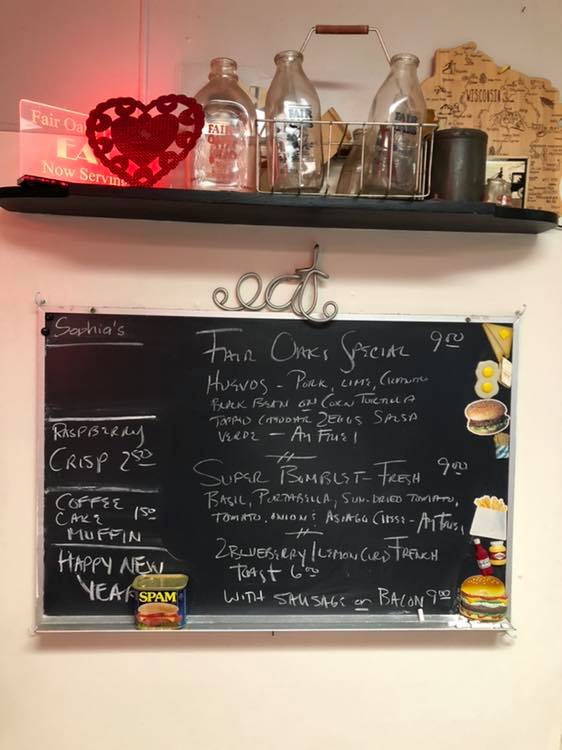 Fair Oa
EA
Now Servin
FAIR
FAIR
FAIR
WISCONSIN
eat
Sophia's
RASPBERRY
CRISP 2.50
COFFEE
CAKE 1.50
MUFFIN
HAPPY NEW
YEAR
SPAM
FAIR OAKS SPECIAL 9.00
HUEVOS - PORK, LIME, CILANTRO
BLACK BEAN ON CORN TORTILLA
TOPPED CHEDDAR 2 EGGS SALSA
VERDE - AM FRIES
SUPER BOMBLET - FRESH 9.00
BASIL, PORTABELLA, SUN-DRIED TOMATO,
TOMATO, ONION & ASIAGO CHEESE - AM FRIES
2 BLUEBERRY/LEMON CURD FRENCH
TOAST 6.00
WITH SAUSAGE OR BACON 9.00